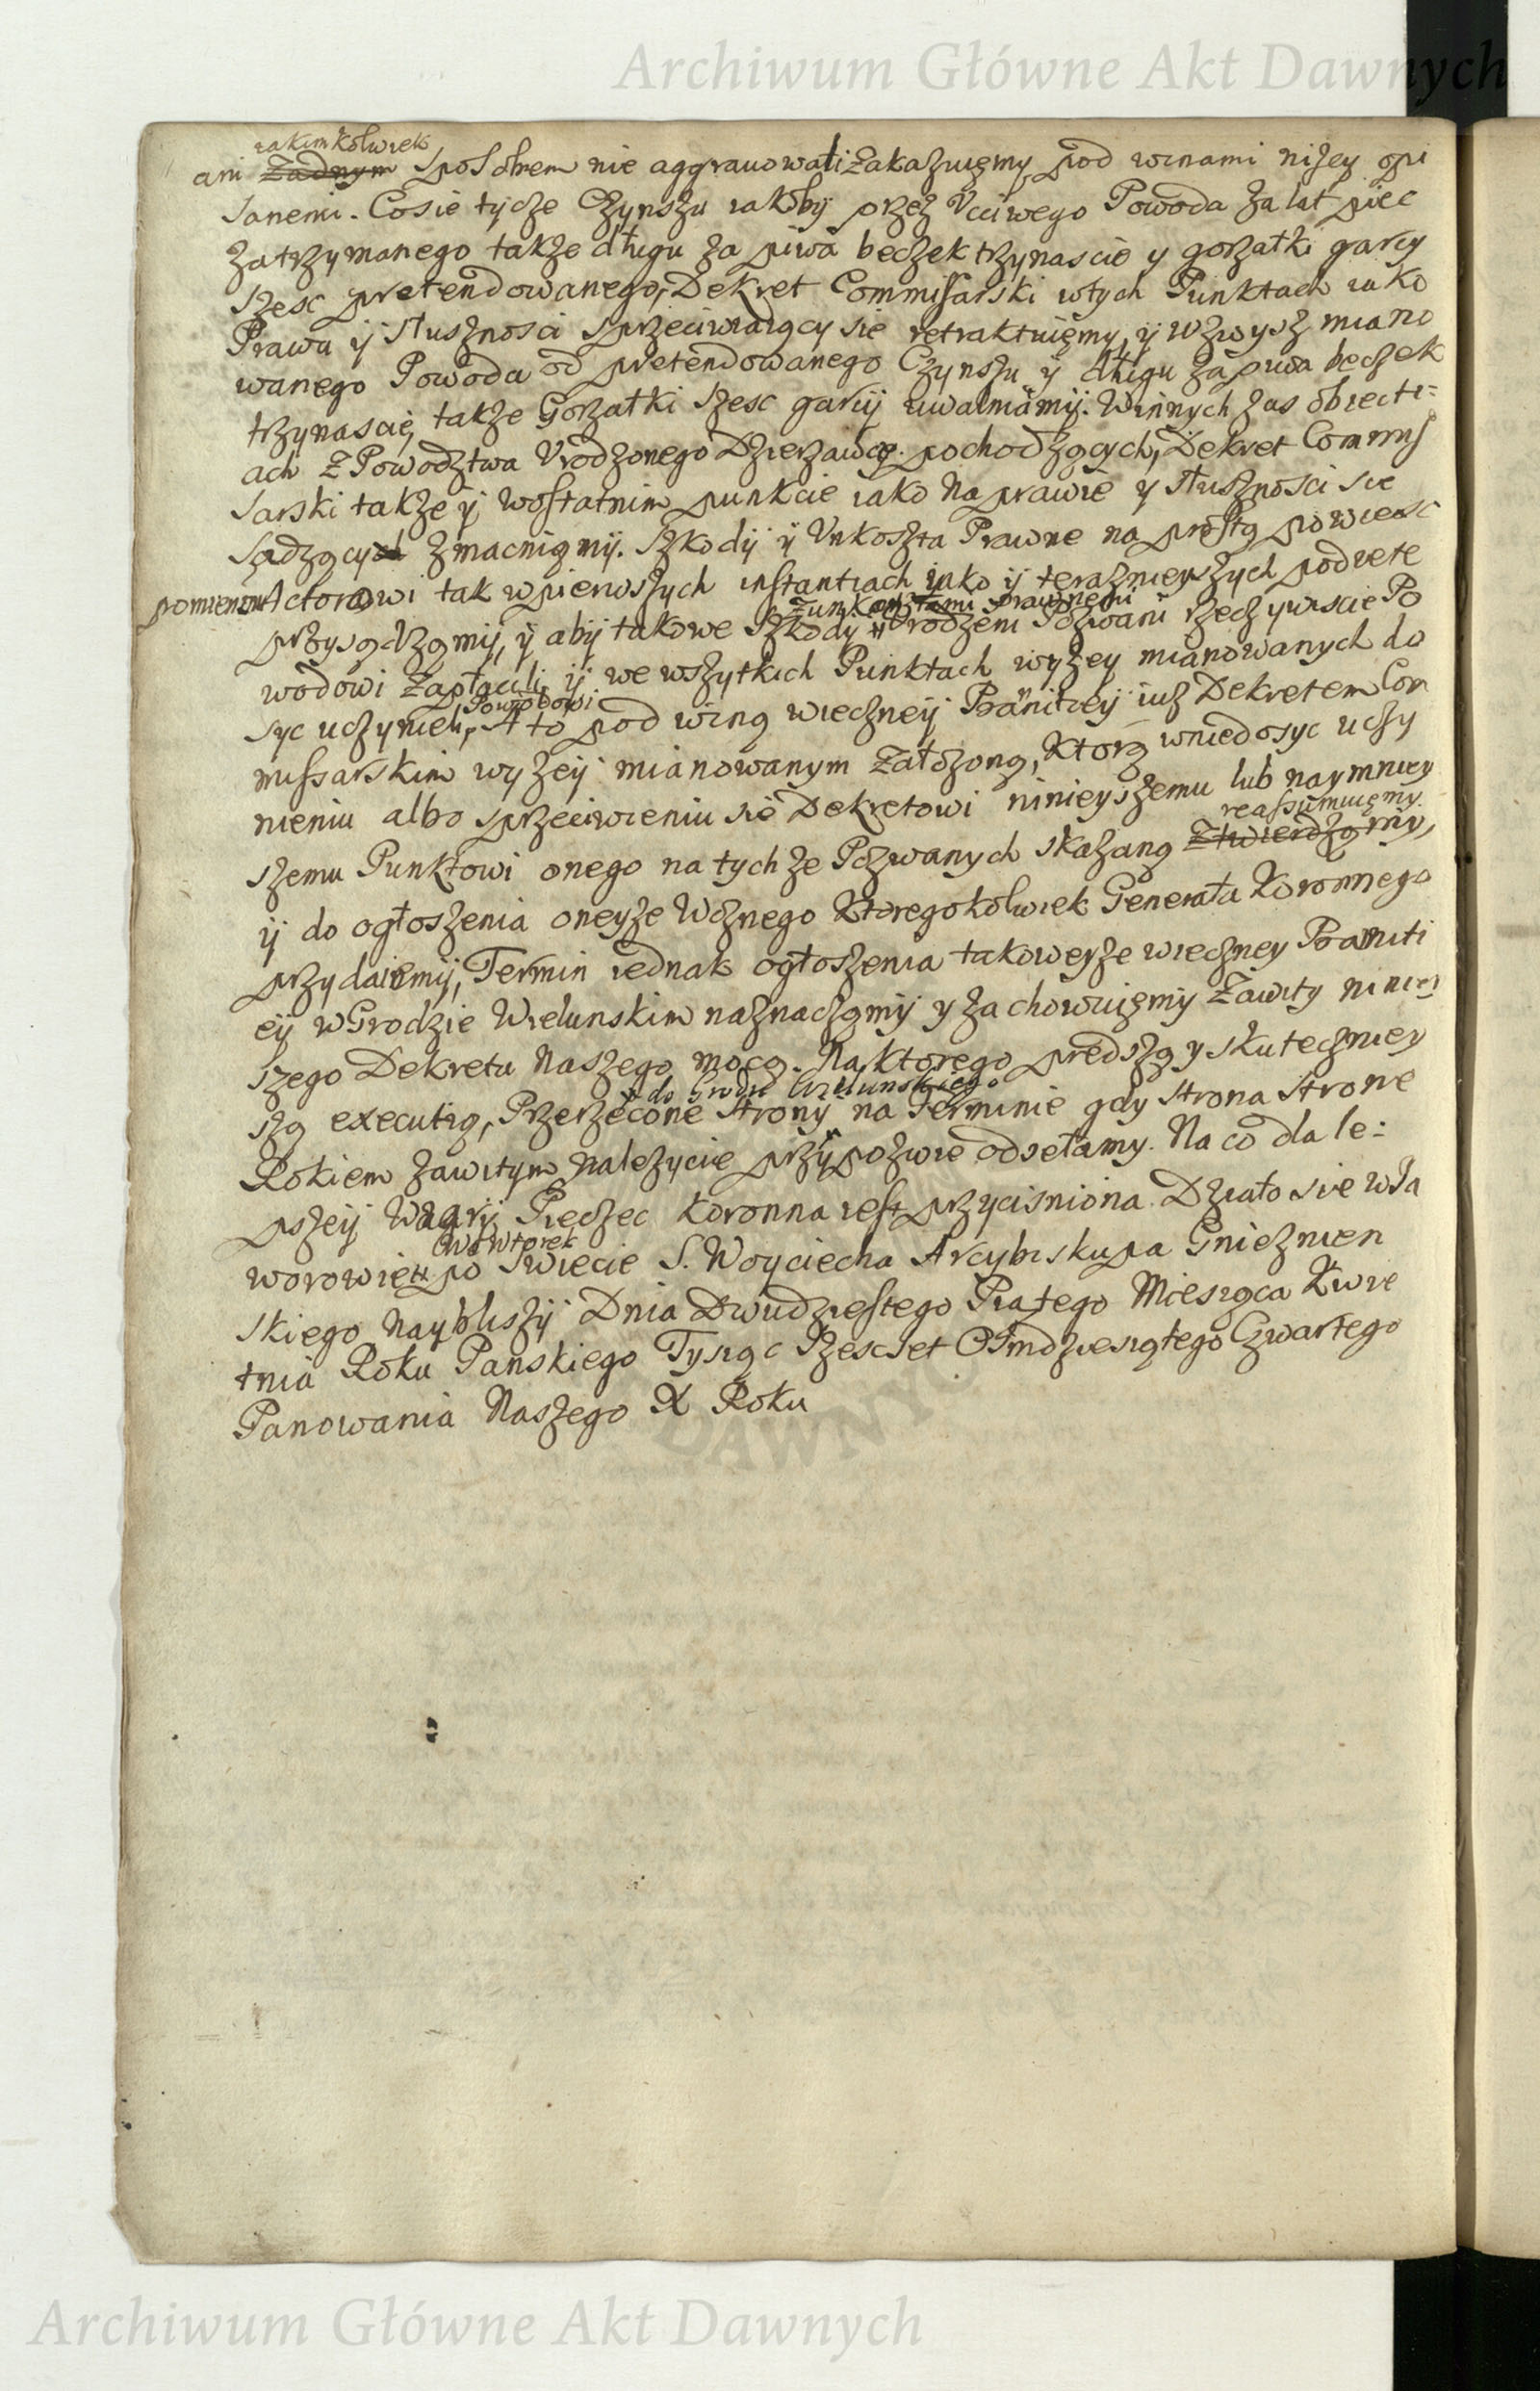 Archiwum Główne Akt Dawnych
iakimkolwiek
ani Zadnym sposobem nie aggrauowali zakazuięmy pod winami niżey opi
sanemi. Cosie tycze Czynszu iakoby przez Vcciwego Powoda za lat pięc
zatrzymanego także długu za piwa beczek trzynascie y gorzałki garcy
szesc pretendowanego, Dekret Commissarski wtych Punktach iako
Prawu ÿ słusznosci sprzeciwiaiący się retraktuięmy, ÿ wzwysz miano
wanego Powoda od pretendowanego Czynszu ÿ długu za piwa beczek
trzynascie, także Gorzałki szesc garcÿ uwalniamÿ. Winnych zas obiecti=
ach z Powodztwa Vrodzonego Dzierzawcy pochodzących, Dekret Commis
sarski także ÿ wostatnim punkcie iako na prawie y słusznosci sie
sądzący zmacniamÿ. Szkodÿ ÿ Vnkoszta Prawne na prostą powiesc
pomienion Actorowi tak wpierwszych instantiach iako ÿ teraznieyszych podięte
zunkosztami prawnemi
przysądzamÿ, ÿ abÿ takowe szkody Vrodzeni Pozwani rzeczywiscie Po
wodowi zapłacili ÿ we wszytkich Punktach wyżey mianowanych do
Powodowi
syc uczynieli, A to pod winą wiecznej Bannitiey iuż Dekretem Com
missarskim wyżeÿ mianowanym założoną, Ktorą wniedosyc uczy
nieniu albo sprzeciwieniu się Dekretowi ninieyszemu lub naymniey
reassumuięmy
szemu Punktowi onego na tychże Pozwanych skazaną Ztwierdzamy,
ÿ do ogłoszenia oneyże Woznego Ktoregokolwiek Generała Koronnego
przydaiemÿ, Termin iednak ogłoszenia takoweyże wieczney Banniti
eÿ w Grodzie Wielunskim naznaczamÿ y zachowuięmy Zawity niniey
szego Dekretu Naszego mocą. Na ktorego prędszą y skuteczniey
do Grodu Wielunskiego
szą executią, Przerzeczone strony na Terminie gdy strona stronę
Rokiem zawitym nalezycie przypozwie odsełamy. Na co dale=
pszeÿ Wagÿ Pieczęc Koronna iest przycisniona. Działo sie w Ja
Wewtorek
worowie po Swięcie S. Woyciecha Arcybiskupa Gnieznien
skiego naybliszÿ Dnia Dwudziestego Piątego Miesiąca Kwie
tnia Roku Panskiego Tysiąc szescset Osmdziesiątego Czwartego
Panowania Naszego X Roku
Archiwum Główne Akt Dawnych